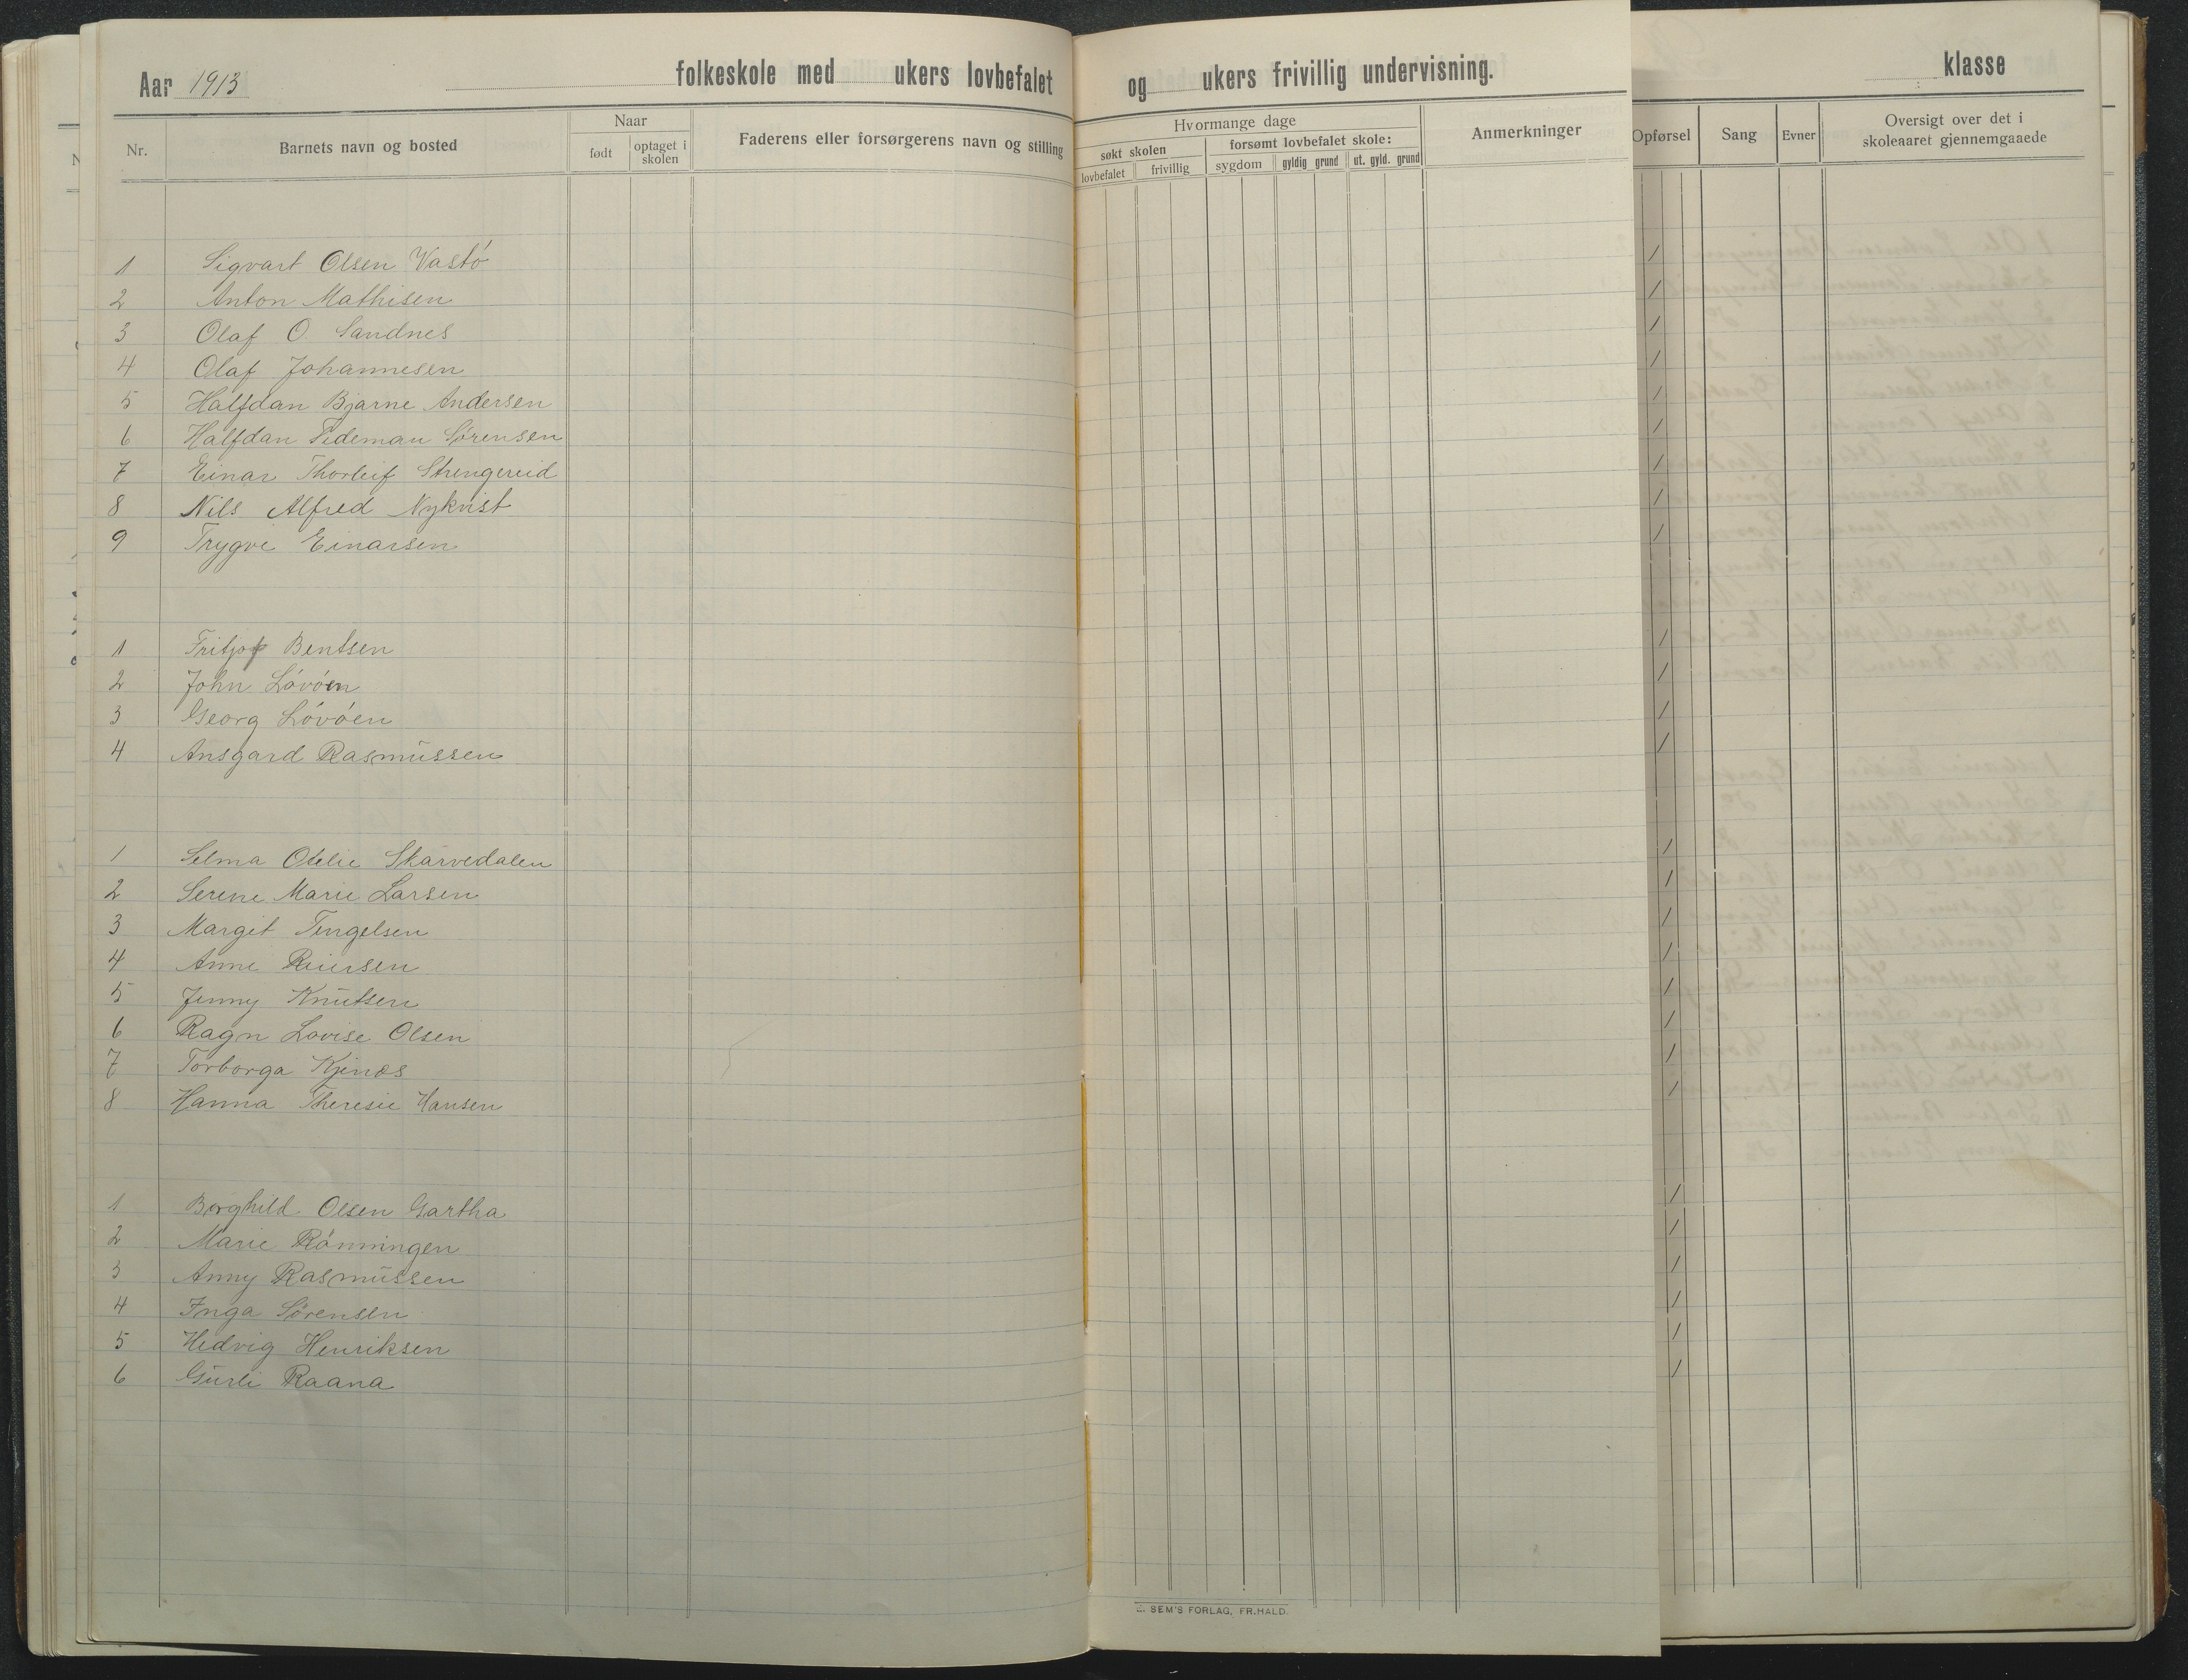 Aar 1913 folkeskole med ukers lovbefalet og ukers frivillig undervisning. klasse
Nr. Barnets navn og bosted Naar født optaget i skolen Faderens eller forsørgerens navn og stilling
Hvormange dage
søkt skolen forsømt lovbefalet skole:
lovbefalet frivillig sygdom gyldig grund ut. gyld. grund
Anmerkninger
Opførsel Sang Evner Oversigt over det i skoleaaret gjennemgaaede
1 Sigvart Olsen Vastó /
2 Anton Mathisen /
3 Olaf O Sandnes /
4 Olaf Johannesen /
5 Halfdan Bjarne Andersen /
6 Halfdan Tideman Sörensen /
7 Einar Thorleif Strengereid /
8 Nils Alfred Nykvist /
9 Trygve Einarsen /
1 Fritjof Bentsen /
2 John Lóvóen /
3 Georg Lóvóen /
4 Ansgard Rasmussen /
1 Selma Otelie Skarvedalen /
2 Serene Marie Larsen /
3 Margit Tengelsen /
4 Anne Reiersen /
5 Jenny Knutsen /
6 Ragn Lovise Olsen /
7 Torborga Kjenæs /
8 Hanna Theresie Hansen /
1 Borghild Olsen Gartha /
2 Marie Rónningen /
3 Anny Rasmussen /
4 Inga Sörensen /
5 Hedvig Henriksen /
6 Gurli Raana /
SEM'S FORLAG, FR.HALD.